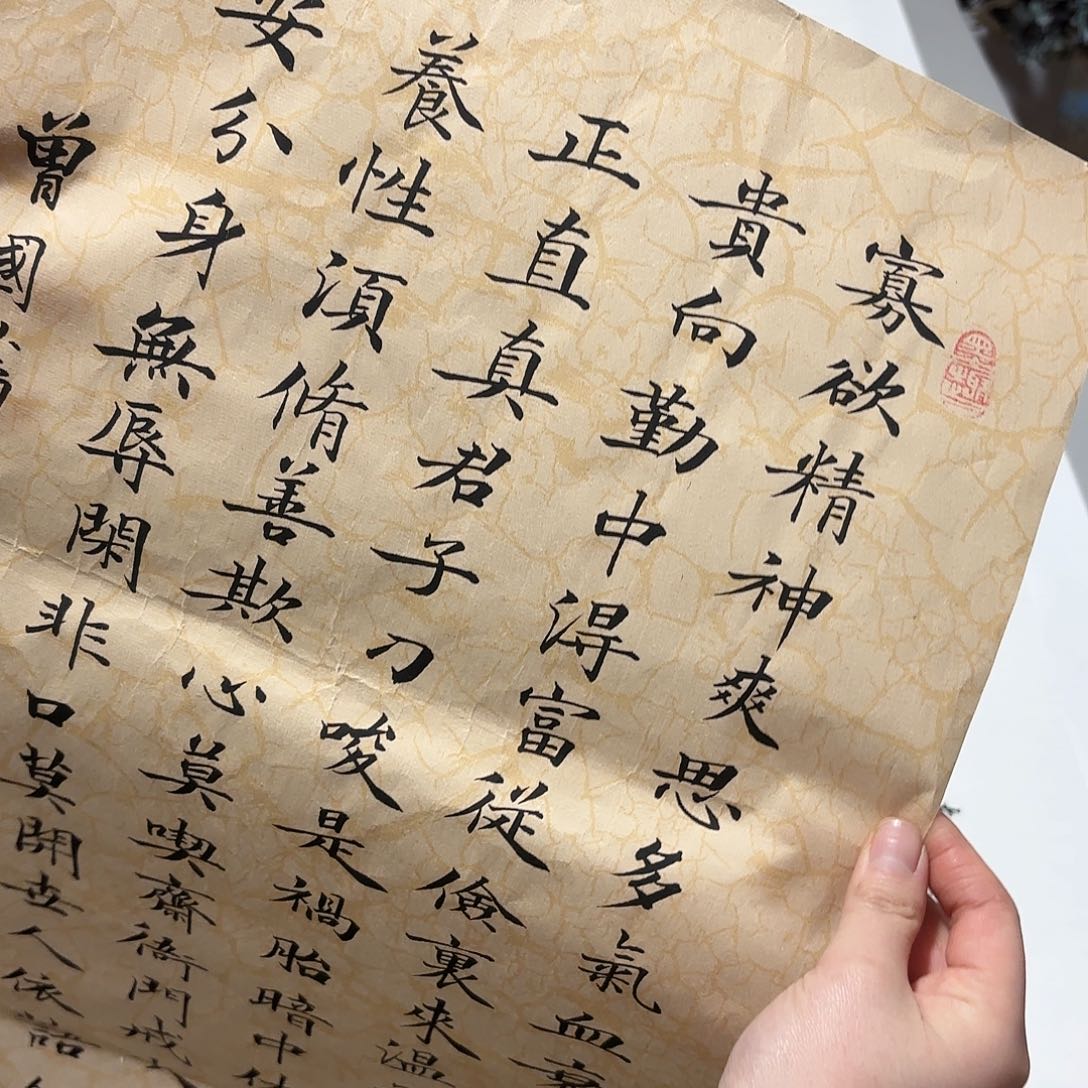 寡欲精神爽思多氣血衰
貴向勤中得富從儉裏來溫
正直真君子刀唆是禍胎暗中休
養性湏脩善欺心莫喫齋衙門戒
安分身無辱閑非口莫開世人依語
曾國